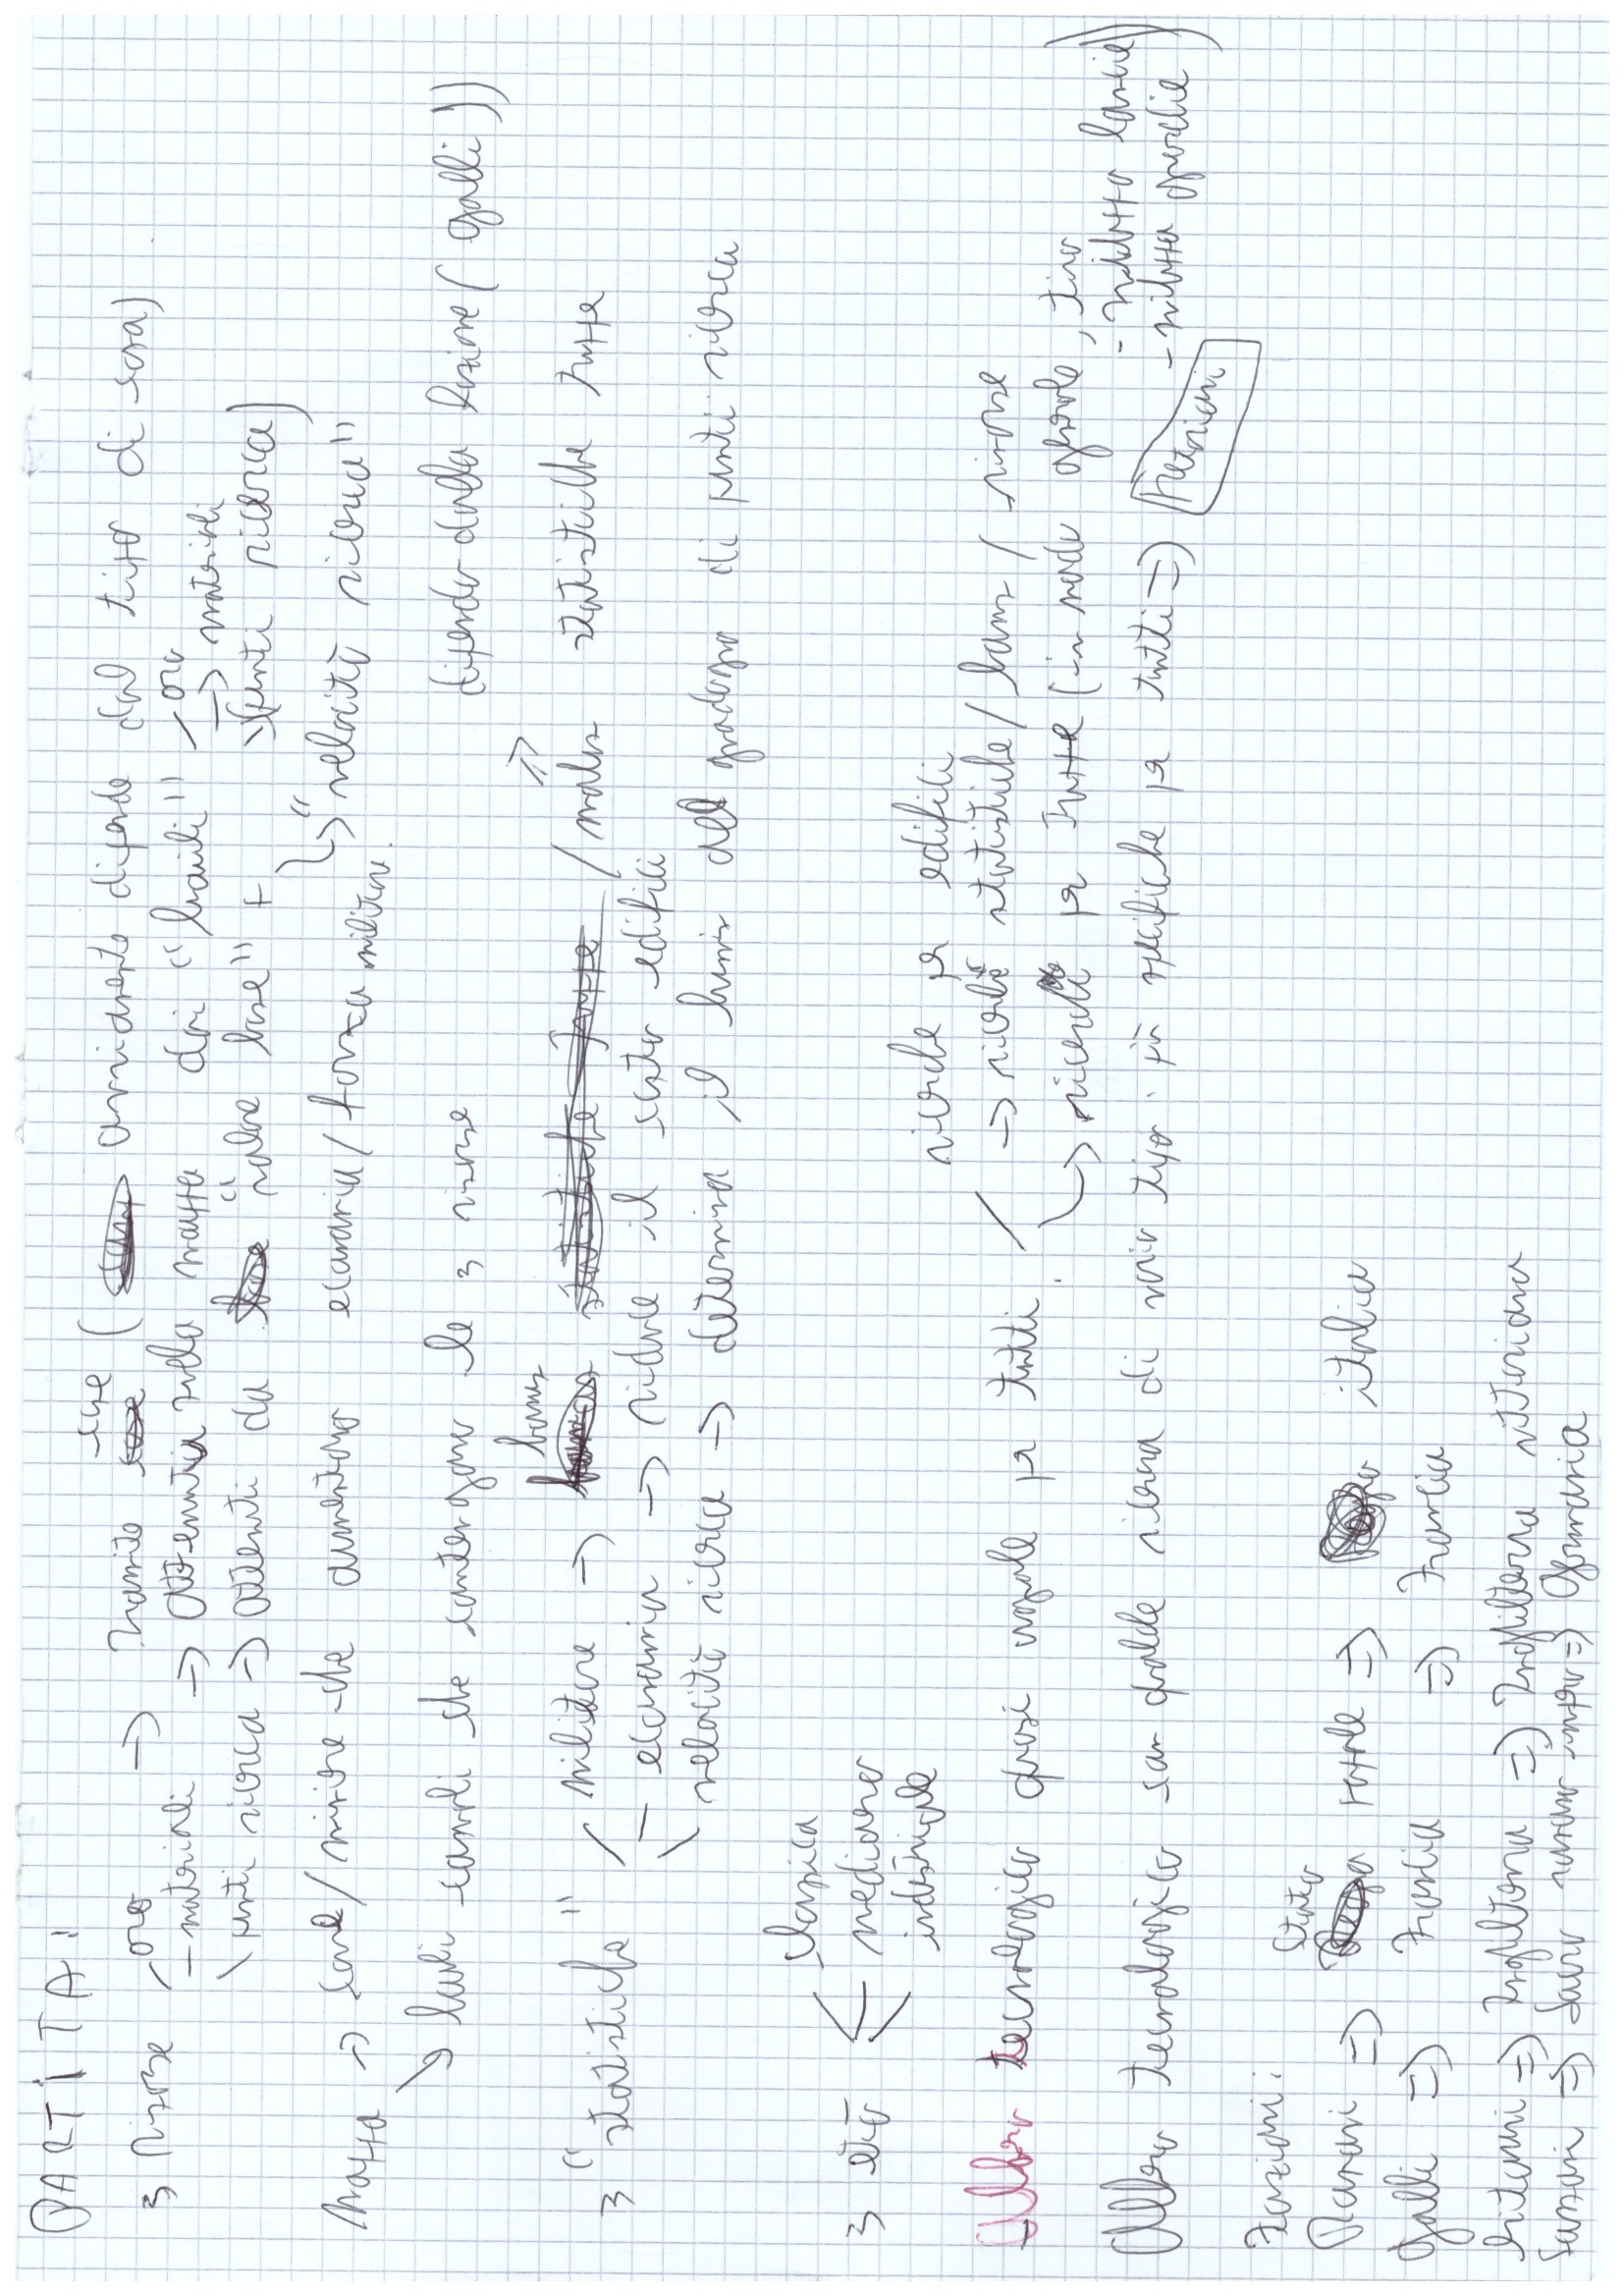 PARTITA:
3 risorse / oro → tramite case (ovviamente dipende dal tipo di casa)
- materiali → ottenuti sulla mappa dai "bauli" / oro → materiali
\ punti ricerca → ottenuti da "valore base" + \ punti ricerca)
↳ "velocità ricerca"
Mappa → case/miniere che aumentano economia/forza militare.
↘ bauli casuali che contengono le 3 risorse
dipende dalla fazione (galli))
3 "statistiche" / militare → bonus /malus statistiche truppe
- economia → riduce il costo edifici
\ velocità ricerca → determina il bonus del guadagno di punti ricerca
3 età classica
mediana
industriale
ricerche per edifici
- Albero tecnologico quasi uguale per tutti. → ricerche statistiche/bonus/risorse
↳ ricerche per truppe (in modo generale, tipo
- miglioria lancie
Albero tecnologico con qualche ricerca di vario tipo più specifiche per tutti ⇒ Pretoriani - guardie)
Fazioni:
Romani ⇒ Stato papale ⇒ italia
galli ⇒ Francia ⇒ Francia
britanni ⇒ Inghilterra ⇒ Inghilterra vittoriana
Sassoni ⇒ Sacro romano impero ⇒ Germania